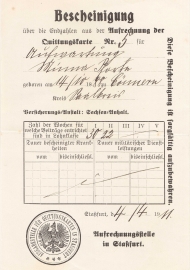 Bescheinigung
über die Entzahlen aus der Aufrechnung der
Quittungskarte Nr. 3 für
Aufwartung
Minna
geboren am 14/10
Kreis
Versicherungs-Anstalt: Sachsen-Anhalt.
Zahl der Wochen für welche Beiträge entrichtet sind in Lohnklasse
I II III IV V
38 22
Dauer bescheinigter Krankheiten
Dauer militärischer Dienstleistungen
vom bis einschliessl. vom bis einschliessl.
Staßfurt, 4/4 11
Aufrechnungsstelle
in Staßfurt.
Diese Bescheinigung ist sorgfältig aufzubewahren.